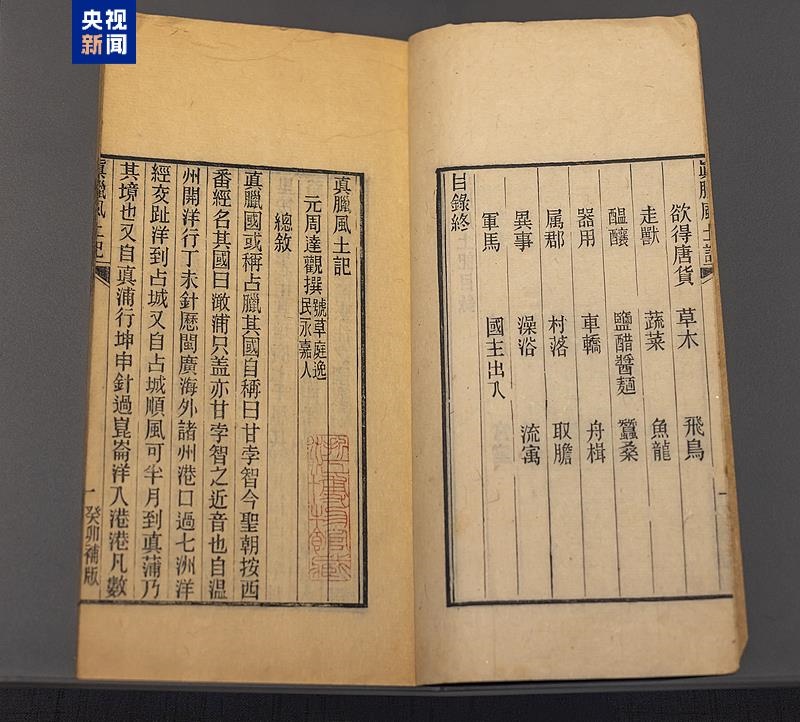 央视
新闻
真臘風土記
欲得唐貨 草木 飛鳥
走獸 蔬菜 魚龍
醖釀 鹽醋醬麵 蠶桑
器用 車轎 舟楫
属郡 村落 取膽
異事 澡浴 流寓
軍馬 國主出入
目錄終
真臘風土記
元周達觀撰 號草庭逸民永嘉人
總敘
眞臘國或稱占臘其國自稱曰甘孛智今聖朝按西
番經名其國曰澉浦只盖亦甘孛智之近音也自溫
州開洋行丁未針歷閩廣海外諸州港口過七洲洋
經交趾洋到占城又自占城順風可半月到眞蒲乃
其境也又自眞蒲行坤申針過崑崙洋入港港凡數
眞臘風土記
一 癸卯補版